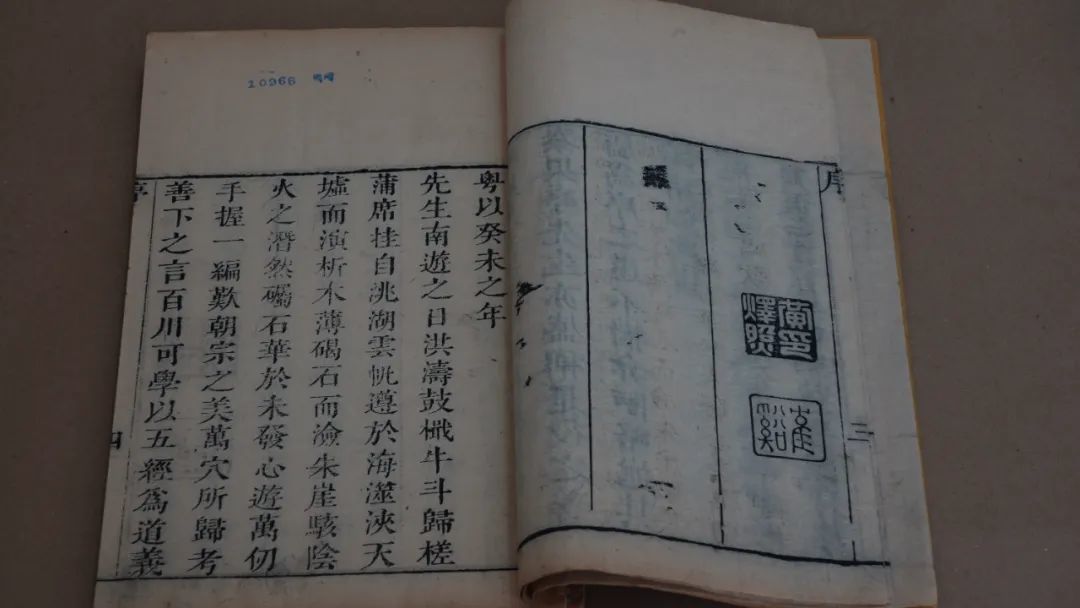 序
黄印燁照
三
粵以癸未之年
先生南遊之日洪濤鼓檝牛斗歸槎
蒲席挂自洮湖雲帆遵於海澨浹天
墟而演析木薄碣石而澰朱崖駭陰
火之潛然矚石華於未發心遊萬仞
手握一編歎朝宗之美萬穴所歸考
善下之言百川可學以五經爲道義
序
四
10966